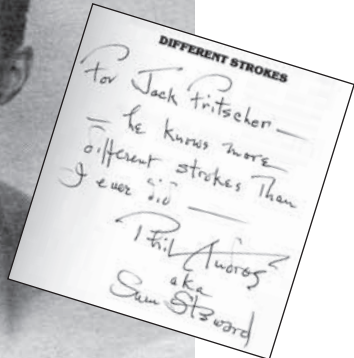 DIFFERENT STROKES
For Jack Fritscher —
— he knows more
different strokes than
I ever did —
"Phil Andros"
aka
Sam Steward